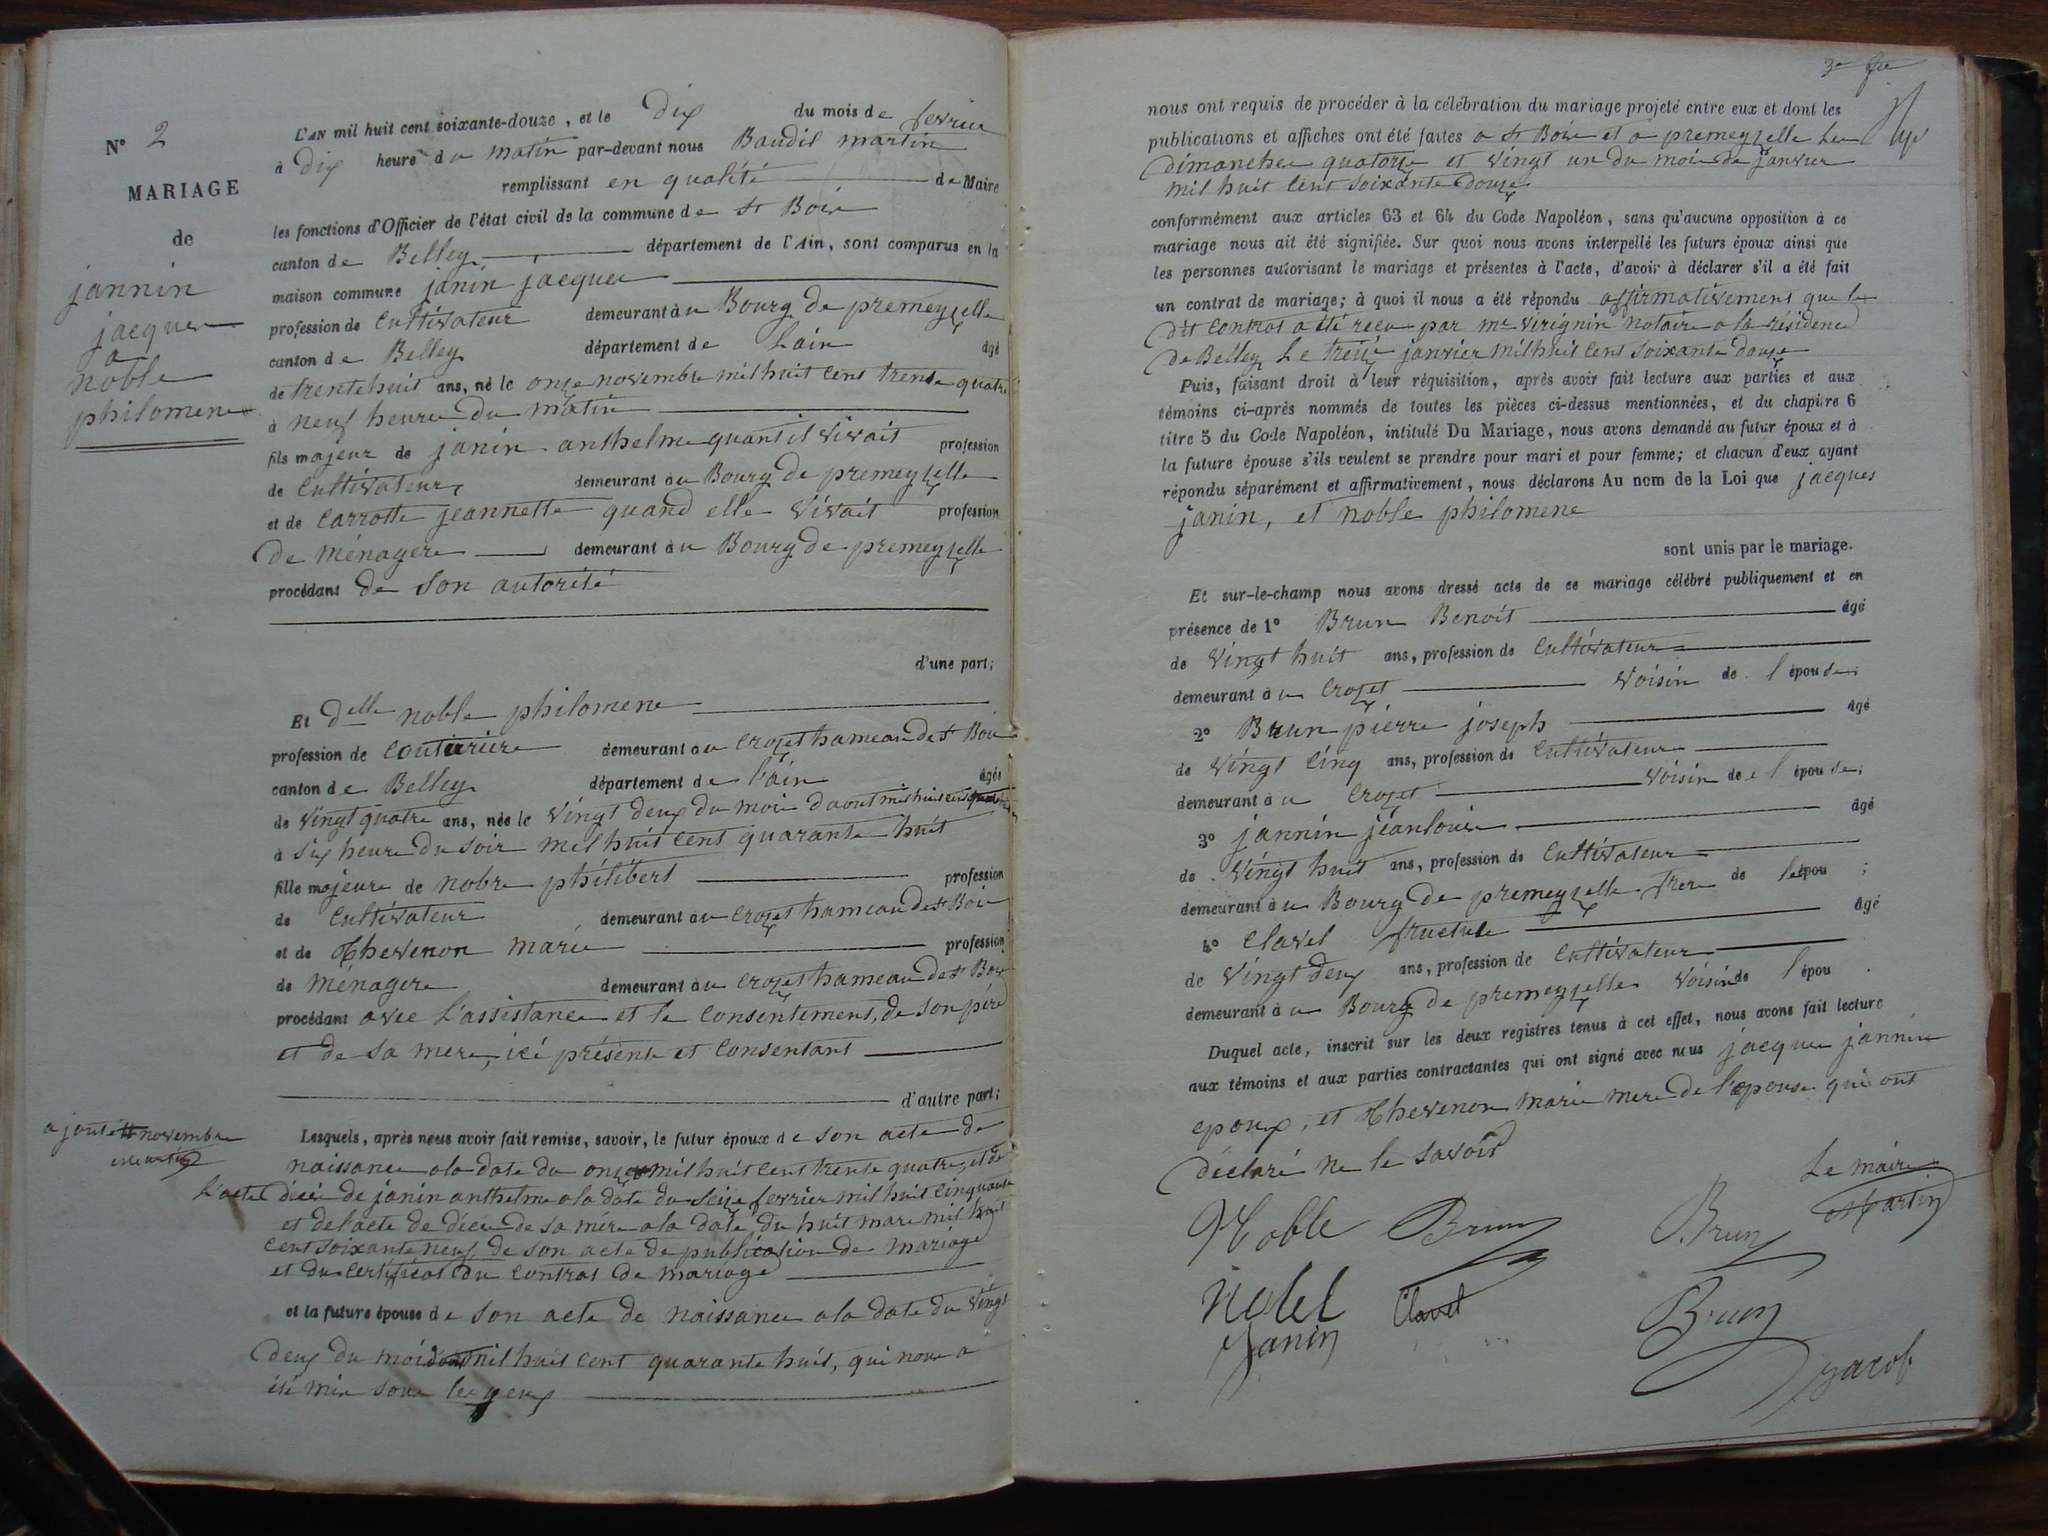 N° 2
MARIAGE
de
jannin
jacques
a
noble
philomene
L'AN mil huit cent soixante-douze, et le Dix du mois de fevrier
à Dix heure du matin par-devant nous Baudil martin
remplissant en qualité de Maire
les fonctions d'Officier de l'état civil de la commune de St Bois
canton de Belley département de l'Ain, sont comparus en la
maison commune janin jacques
profession de Cultivateur demeurant au Bourg de premeyzelle
canton de Belley département de Lain âgé
de trente huit ans, né le onze novembre mil huit cent trente quatre
à neuf heure du matin
fils majeur de janin anthelme quant il vivait profession
de Cultivateur demeurant au Bourg de premeyzelle
et de Carrotte jeannette quand elle vivait profession
de ménagere demeurant au Bourg de premeyzelle
procédant de son autorité
d'une part;
Et Delle noble philomene
profession de Couturiere demeurant au Crozet hameau de St Bois
canton de Belley département de l'ain âgée
de vingt quatre ans, née le vingt deux du mois d'aout mil huit cent
à six heure du soir mil huit cent quarante huit
fille majeure de nobre philibert profession
de Cultivateur demeurant au Crozet hameau de St Bois
et de Thevenon marie profession
de ménagere demeurant au Crozet hameau de St Bois
procédant avec l'assistance et le Consentement, de son père
et de sa mere, ici présente et Consentant
d'autre part;
ajouté novembre
Lesquels, après nous avoir fait remise, savoir, le futur époux de son acte de
naissance a la date du onze mil huit cent trente quatre, et de
L'acte deces de janin anthelme a la date du seize fevrier mil huit cinquante
et de l'acte de déces de sa mére a la date du huit mars mil huit
cent soixante neuf, de son acte de publication de mariage
et du certificat du contrat de mariage
et la future épouse de son acte de naissance a la date du vingt
deux du mois d'aout mil huit cent quarante huit, qui nous a
été mis sous les yeux
3e
nous ont requis de procéder à la célébration du mariage projeté entre eux et dont les
publications et affiches ont été faites a St Bois et a premeyzelle les
dimanches quatorze et vingt un du mois de janvier
mil huit cent soixante douze
conformément aux articles 63 et 64 du Code Napoléon, sans qu'aucune opposition à ce
mariage nous ait été signifiée. Sur quoi nous avons interpellé les futurs époux ainsi que
les personnes autorisant le mariage et présentes à l'acte, d'avoir à déclarer s'il a été fait
un contrat de mariage; à quoi il nous a été répondu affirmativement que le
dit contrat a été reçu par me virignin notaire a la résidence
de Belley le treize janvier mil huit cent soixante douze
Puis, faisant droit à leur réquisition, après avoir fait lecture aux parties et aux
témoins ci-après nommés de toutes les pièces ci-dessus mentionnées, et du chapitre 6
titre 5 du Code Napoléon, intitulé Du Mariage, nous avons demandé au futur époux et à
la future épouse s'ils veulent se prendre pour mari et pour femme; et chacun d'eux ayant
répondu séparément et affirmativement, nous déclarons Au nom de la Loi que jacques
janin, et noble philomene
sont unis par le mariage.
Et sur-le-champ nous avons dressé acte de ce mariage célébré publiquement et en
présence de 1° Brun Benoit âgé
de vingt huit ans, profession de Cultivateur
demeurant au Crozet voisin de l'épouse;
2° Brun pierre joseph âgé
de vingt cinq ans, profession de Cultivateur
demeurant au Crozet voisin de l'épouse;
3° jannin jean louis âgé
de vingt huit ans, profession de Cultivateur
demeurant au Bourg de premeyzelle frere de l'épou ;
4° Clavel fructule âgé
de vingt deux ans, profession de Cultivateur
demeurant au Bourg de premeyzelle voisin de l'épou .
Duquel acte, inscrit sur les deux registres tenus à cet effet, nous avons fait lecture
aux témoins et aux parties contractantes qui ont signé avec nous jacques jannin
epoux, et Thevenon marie mere de l'epouse qui ont
déclaré ne le savoir
Le maire
Martin
Noble Brun Brun
Clavel Brun
Janin
jacob